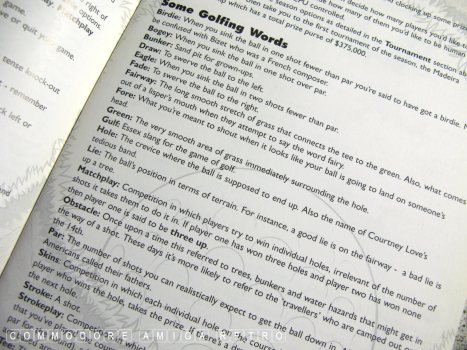 right of
options.
Matchplay
game.
me.
or quit
game.
knock-out
- remember
left or
season options as detailed in the Tournament section
how many of them you'd like to be
you to the first tournament of the season, the Madeira
which has a total prize purse of $375,000
Some Golfing Words
Birdie: When you sink the ball in one shot fewer than par you're said to have got a birdie.
be confused with Bizet who was a French composer.
Bogey: When you sink the ball in one shot over par.
Bunker: Sand pit for grown-ups.
Draw: To swerve the ball to the left.
Eagle: When you sink the ball in two shots fewer than par.
Fade: To swerve the ball to the right.
Fairway: The long smooth stretch of grass that connects the tee to the green. Also, what comes
out of a lisper's mouth when they attempt to say the word fairy.
Fore: What you're meant to shout when it looks like your ball is going to land on someone's
head.
Green: The very smooth area of grass immediately surrounding the hole.
Gulf: Essex slang for the game of golf.
Hole: The crevice where the ball is supposed to end up. Also the name of Courtney Love's
tedious band.
Lie: The ball's position in terms of terrain. For instance, a good lie is on the fairway - a bad lie is
up a tree.
Matchplay: Competition in which players try to win individual holes, irrelevant of the number of
shots it takes them to do it in. If player one has won three holes and player two has won none
then player one is said to be three up.
Obstacle: Once upon a time this referred to trees, bunkers and water hazards that might get in
the way of a shot. These days it's more likely to refer to the 'travellers' who are camped out on
the 14th.
Par: The number of shots you can realistically expect to get the ball down in.
Americans called their fathers.
Skins: Competition in which each individual hole
player who wins the hole, takes the prize. If there's a
the next hole.
Stroke: A shot.
Strokeplay: Competition
that you've
COMMODORE AMIGA RETRO